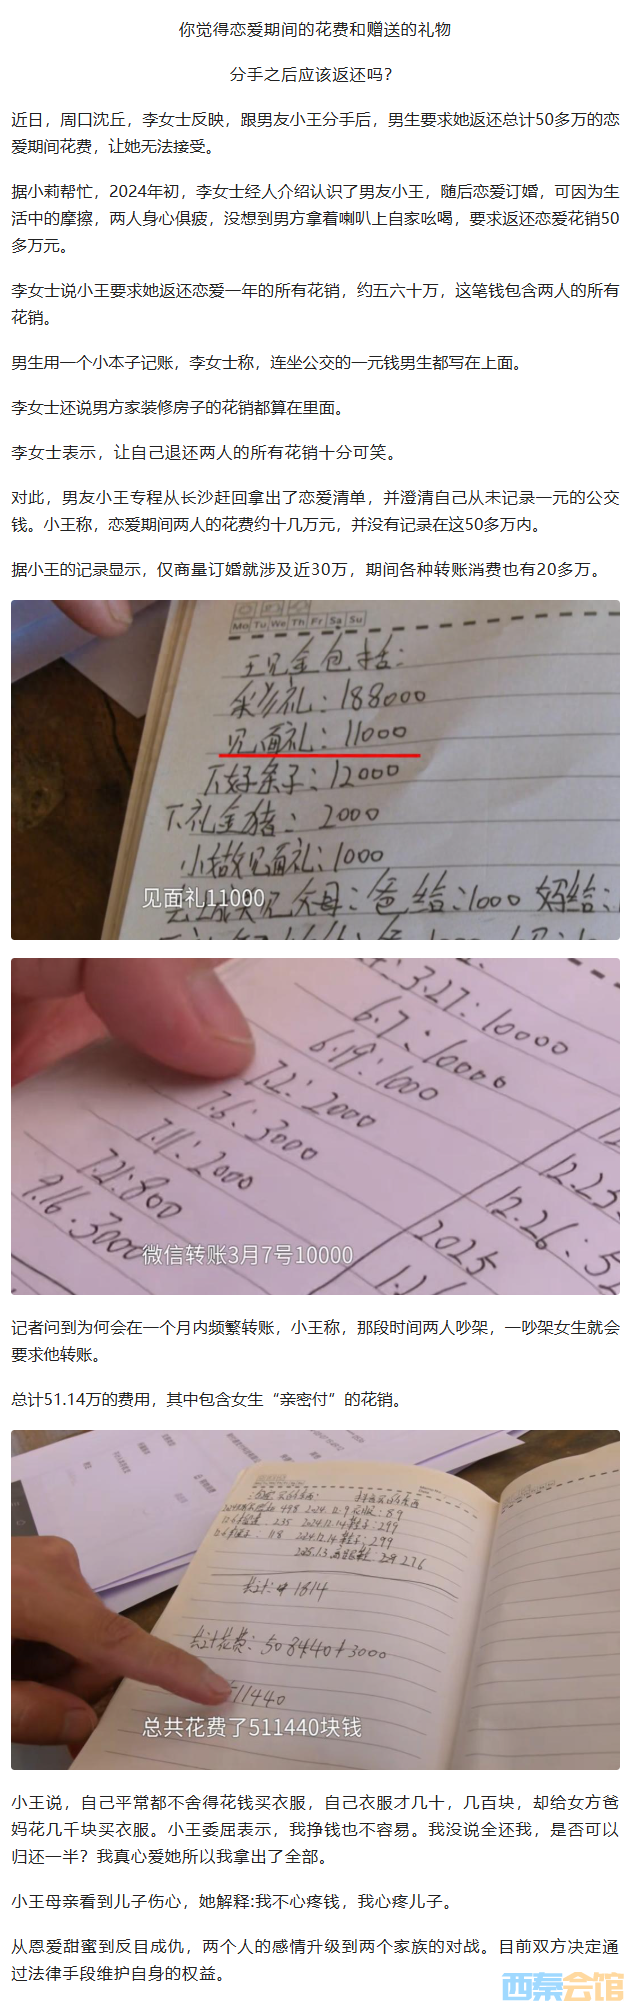 你觉得恋爱期间的花费和赠送的礼物
分手之后应该返还吗？
近日，周口沈丘，李女士反映，跟男友小王分手后，男生要求她返还总计50多万的恋
爱期间花费，让她无法接受。
据小莉帮忙，2024年初，李女士经人介绍认识了男友小王，随后恋爱订婚，可因为生
活中的摩擦，两人身心俱疲，没想到男方拿着喇叭上自家吆喝，要求返还恋爱花销50
多万元。
李女士说小王要求她返还恋爱一年的所有花销，约五六十万，这笔钱包含两人的所有
花销。
男生用一个小本子记账，李女士称，连坐公交的一元钱男生都写在上面。
李女士还说男方家装修房子的花销都算在里面。
李女士表示，让自己退还两人的所有花销十分可笑。
对此，男友小王专程从长沙赶回拿出了恋爱清单，并澄清自己从未记录一元的公交
钱。小王称，恋爱期间两人的花费约十几万元，并没有记录在这50多万内。
据小王的记录显示，仅商量订婚就涉及近30万，期间各种转账消费也有20多万。
Mo Tu We Th Fr Sa Su
现金包括：
彩礼：188000
见面礼：11000
下好条子：12000
下礼金猪：2000
见面礼：1000
父母：爸给：1000 妈给：
见面礼11000
3.27：10000
6.7：10000
6.19：1000
7.2：2000
7.6：3000
7.11：2000
7.21：800
9.16：3000
12.25
12.26：52
2025
微信转账3月7号10000
记者问到为何会在一个月内频繁转账，小王称，那段时间两人吵架，一吵架女生就会
要求他转账。
总计51.14万的费用，其中包含女生“亲密付”的花销。
498 2024.12.9 衣服：89
235 2024.12.14 鞋子：299
118 2024.12.14 鞋子：299
276
共计：1814
共计花费：508440+3000
511440
总共花费了511440块钱
小王说，自己平常都不舍得花钱买衣服，自己衣服才几十，几百块，却给女方爸
妈花几千块买衣服。小王委屈表示，我挣钱也不容易。我没说全还我，是否可以
归还一半？我真心爱她所以我拿出了全部。
小王母亲看到儿子伤心，她解释:我不心疼钱，我心疼儿子。
从恩爱甜蜜到反目成仇，两个人的感情升级到两个家族的对战。目前双方决定通
过法律手段维护自身的权益。
西秦会馆